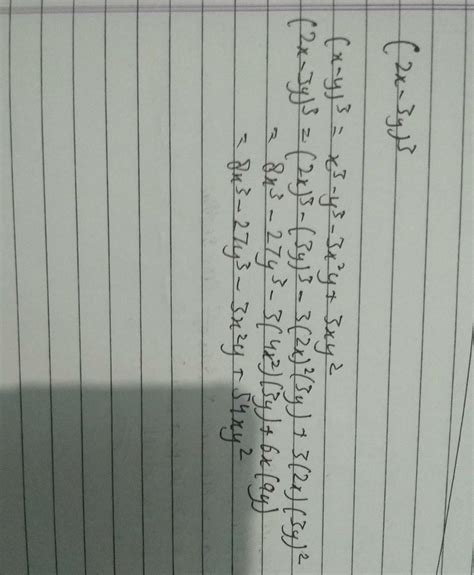 (2x-3y)³
(x-y)³ = x³-y³-3x²y+3xy²
(2x-3y)³ = (2x)³-(3y)³-3(2x)²(3y)+3(2x)(3y)²
= 8x³-27y³-3(4x²)(3y)+6x(9y)
= 8x³-27y³-3x²y+54xy²